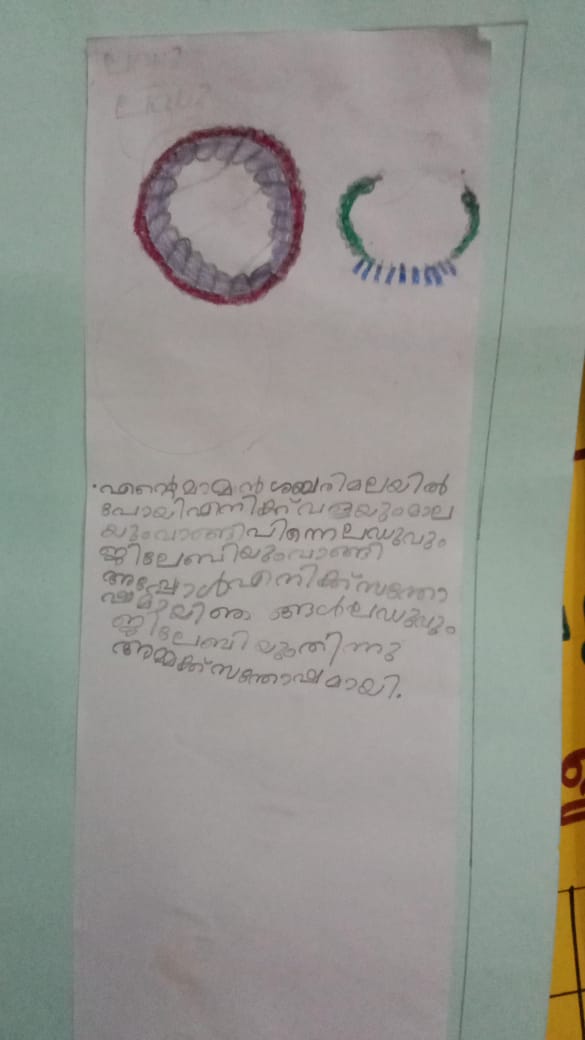 എന്റെ മാമൻ ശബരിമലയിൽ
പോയി എനിക്ക് വളയും മാല
യും വാങ്ങി പിന്നെ ലഡുവും
ജിലേബിയും വാങ്ങി
അപ്പോൾ എനിക്ക് സന്തോ
ഷമായി ഞങ്ങൾ ലഡുവും
ജിലേബിയും തിന്നു
അമ്മക്ക് സന്തോഷമായി.